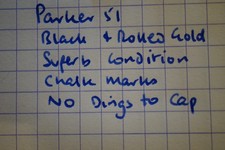 Parker 51
Black & Rolled Gold
Superb Condition
Chalk marks
No Dings to Cap